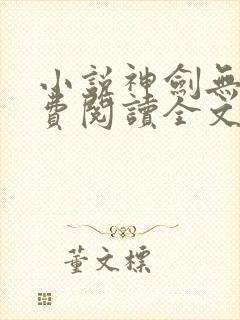 小說神劍無
費閱讀全文
董文標